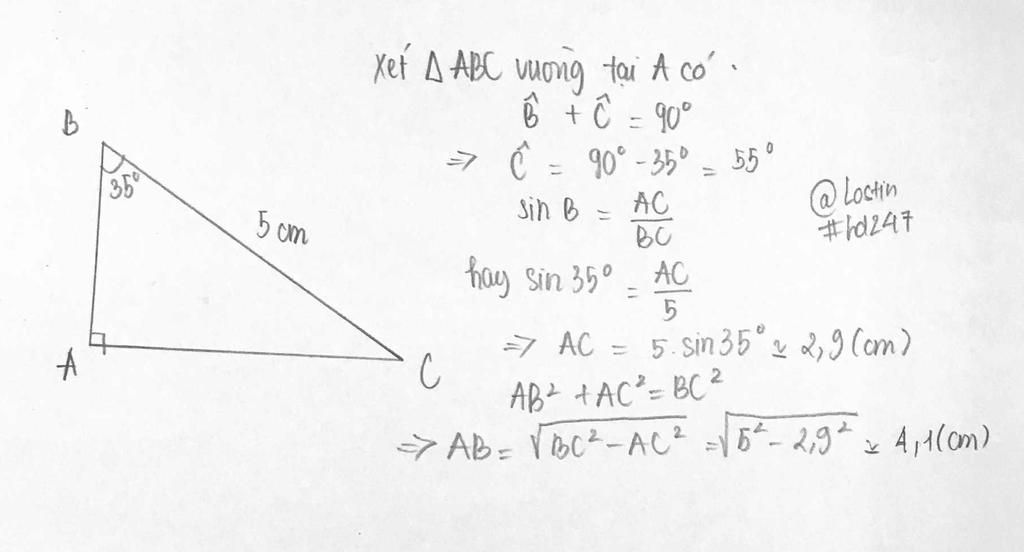 Xét Δ ABC vuông tại A có.
B̂ + Ĉ = 90°
⇒ Ĉ = 90° - 35° = 55°
sin B = AC/BC
hay sin 35° = AC/5
⇒ AC = 5.sin35° ≃ 2,9(cm)
AB² + AC² = BC²
⇒ AB = √BC² - AC² = √5² - 2,9² ≃ 4,1(cm)
B
35°
5 cm
A
C
@Loctin
#hd247